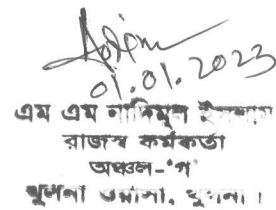 01.01.2023
এম এম নাদিমুল ইসলাম
রাজস্ব কর্মকর্তা
অঞ্চল-'গ'
খুলনা ওয়াসা, খুলনা।